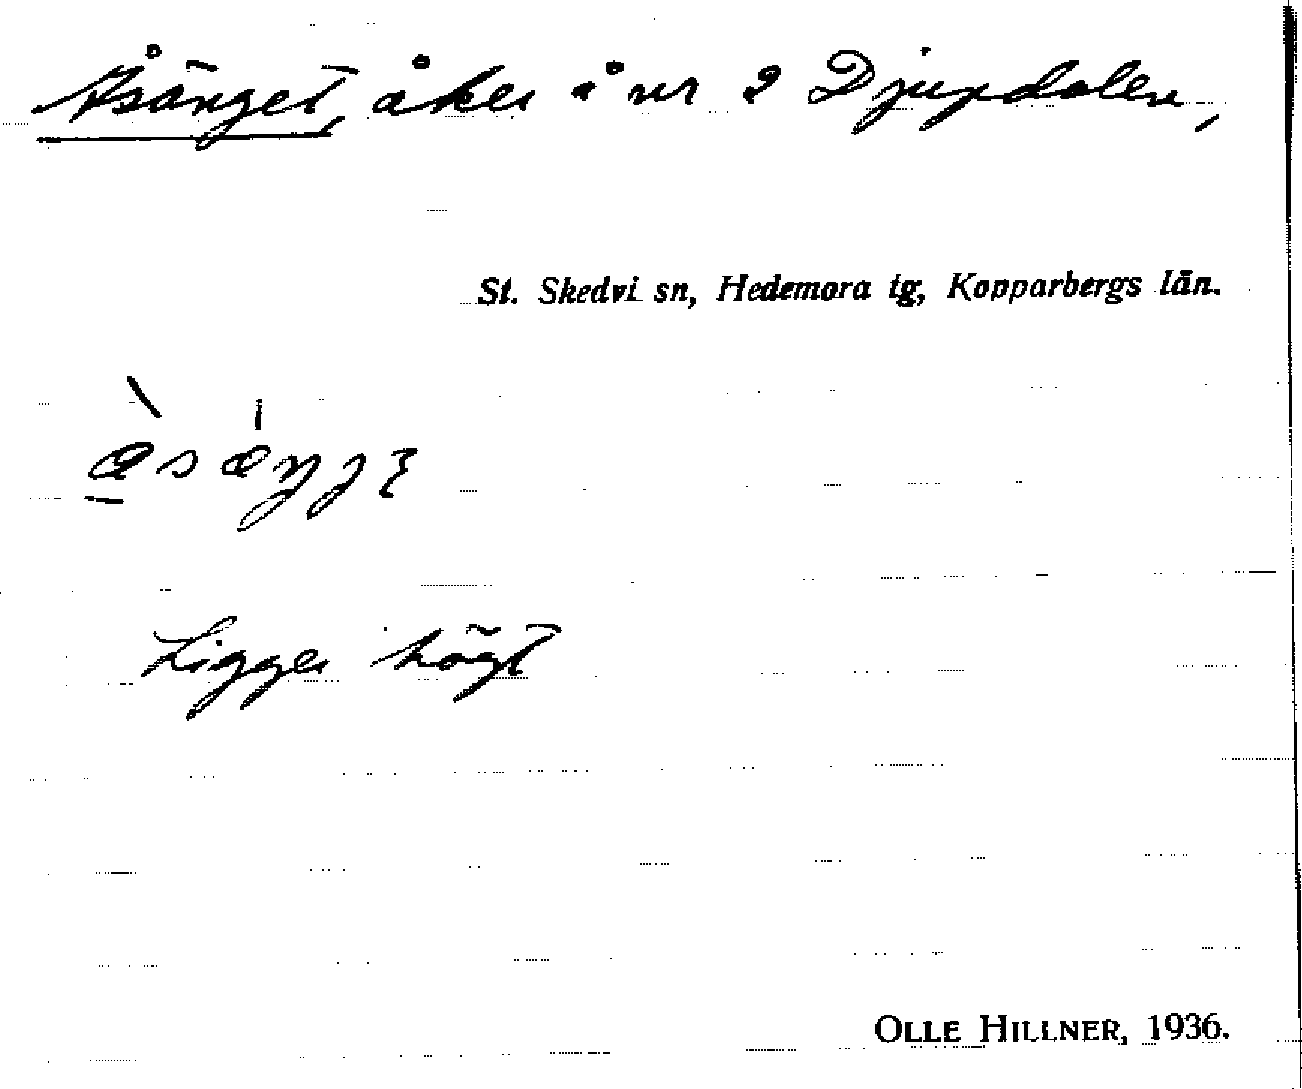 Åsänget, åker å nr 2 Djupdalen,
St. Skedvi sn, Hedemora tg, Kopparbergs län.
Ligger högt
OLLE HILLNER, 1936.